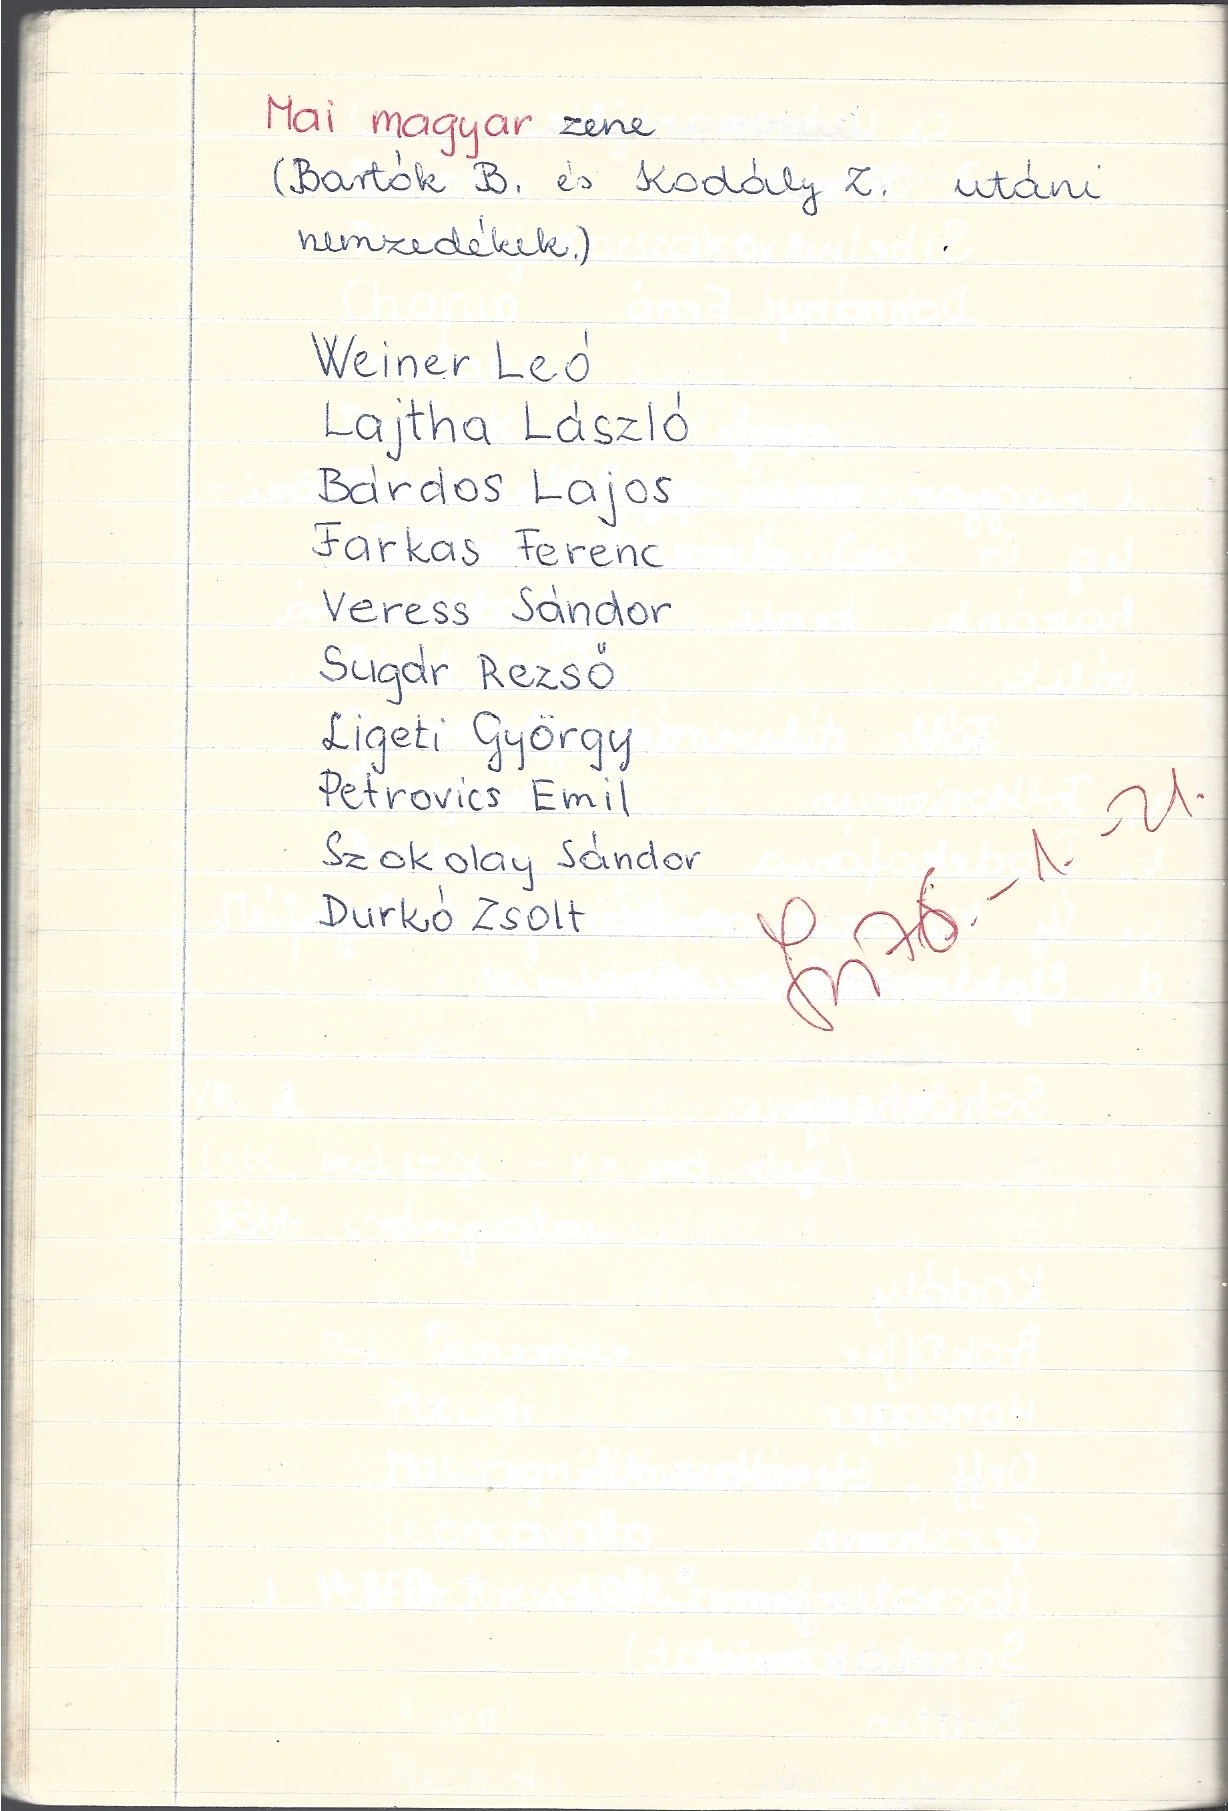 Mai magyar zene
(Bartók B. és Kodály Z. utáni
nemzedékek.)
Weiner Leó
Lajtha László
Bárdos Lajos
Farkas Ferenc
Veress Sándor
Sugár Rezső
Ligeti György
Petrovics Emil
Szokolay Sándor
Durkó Zsolt